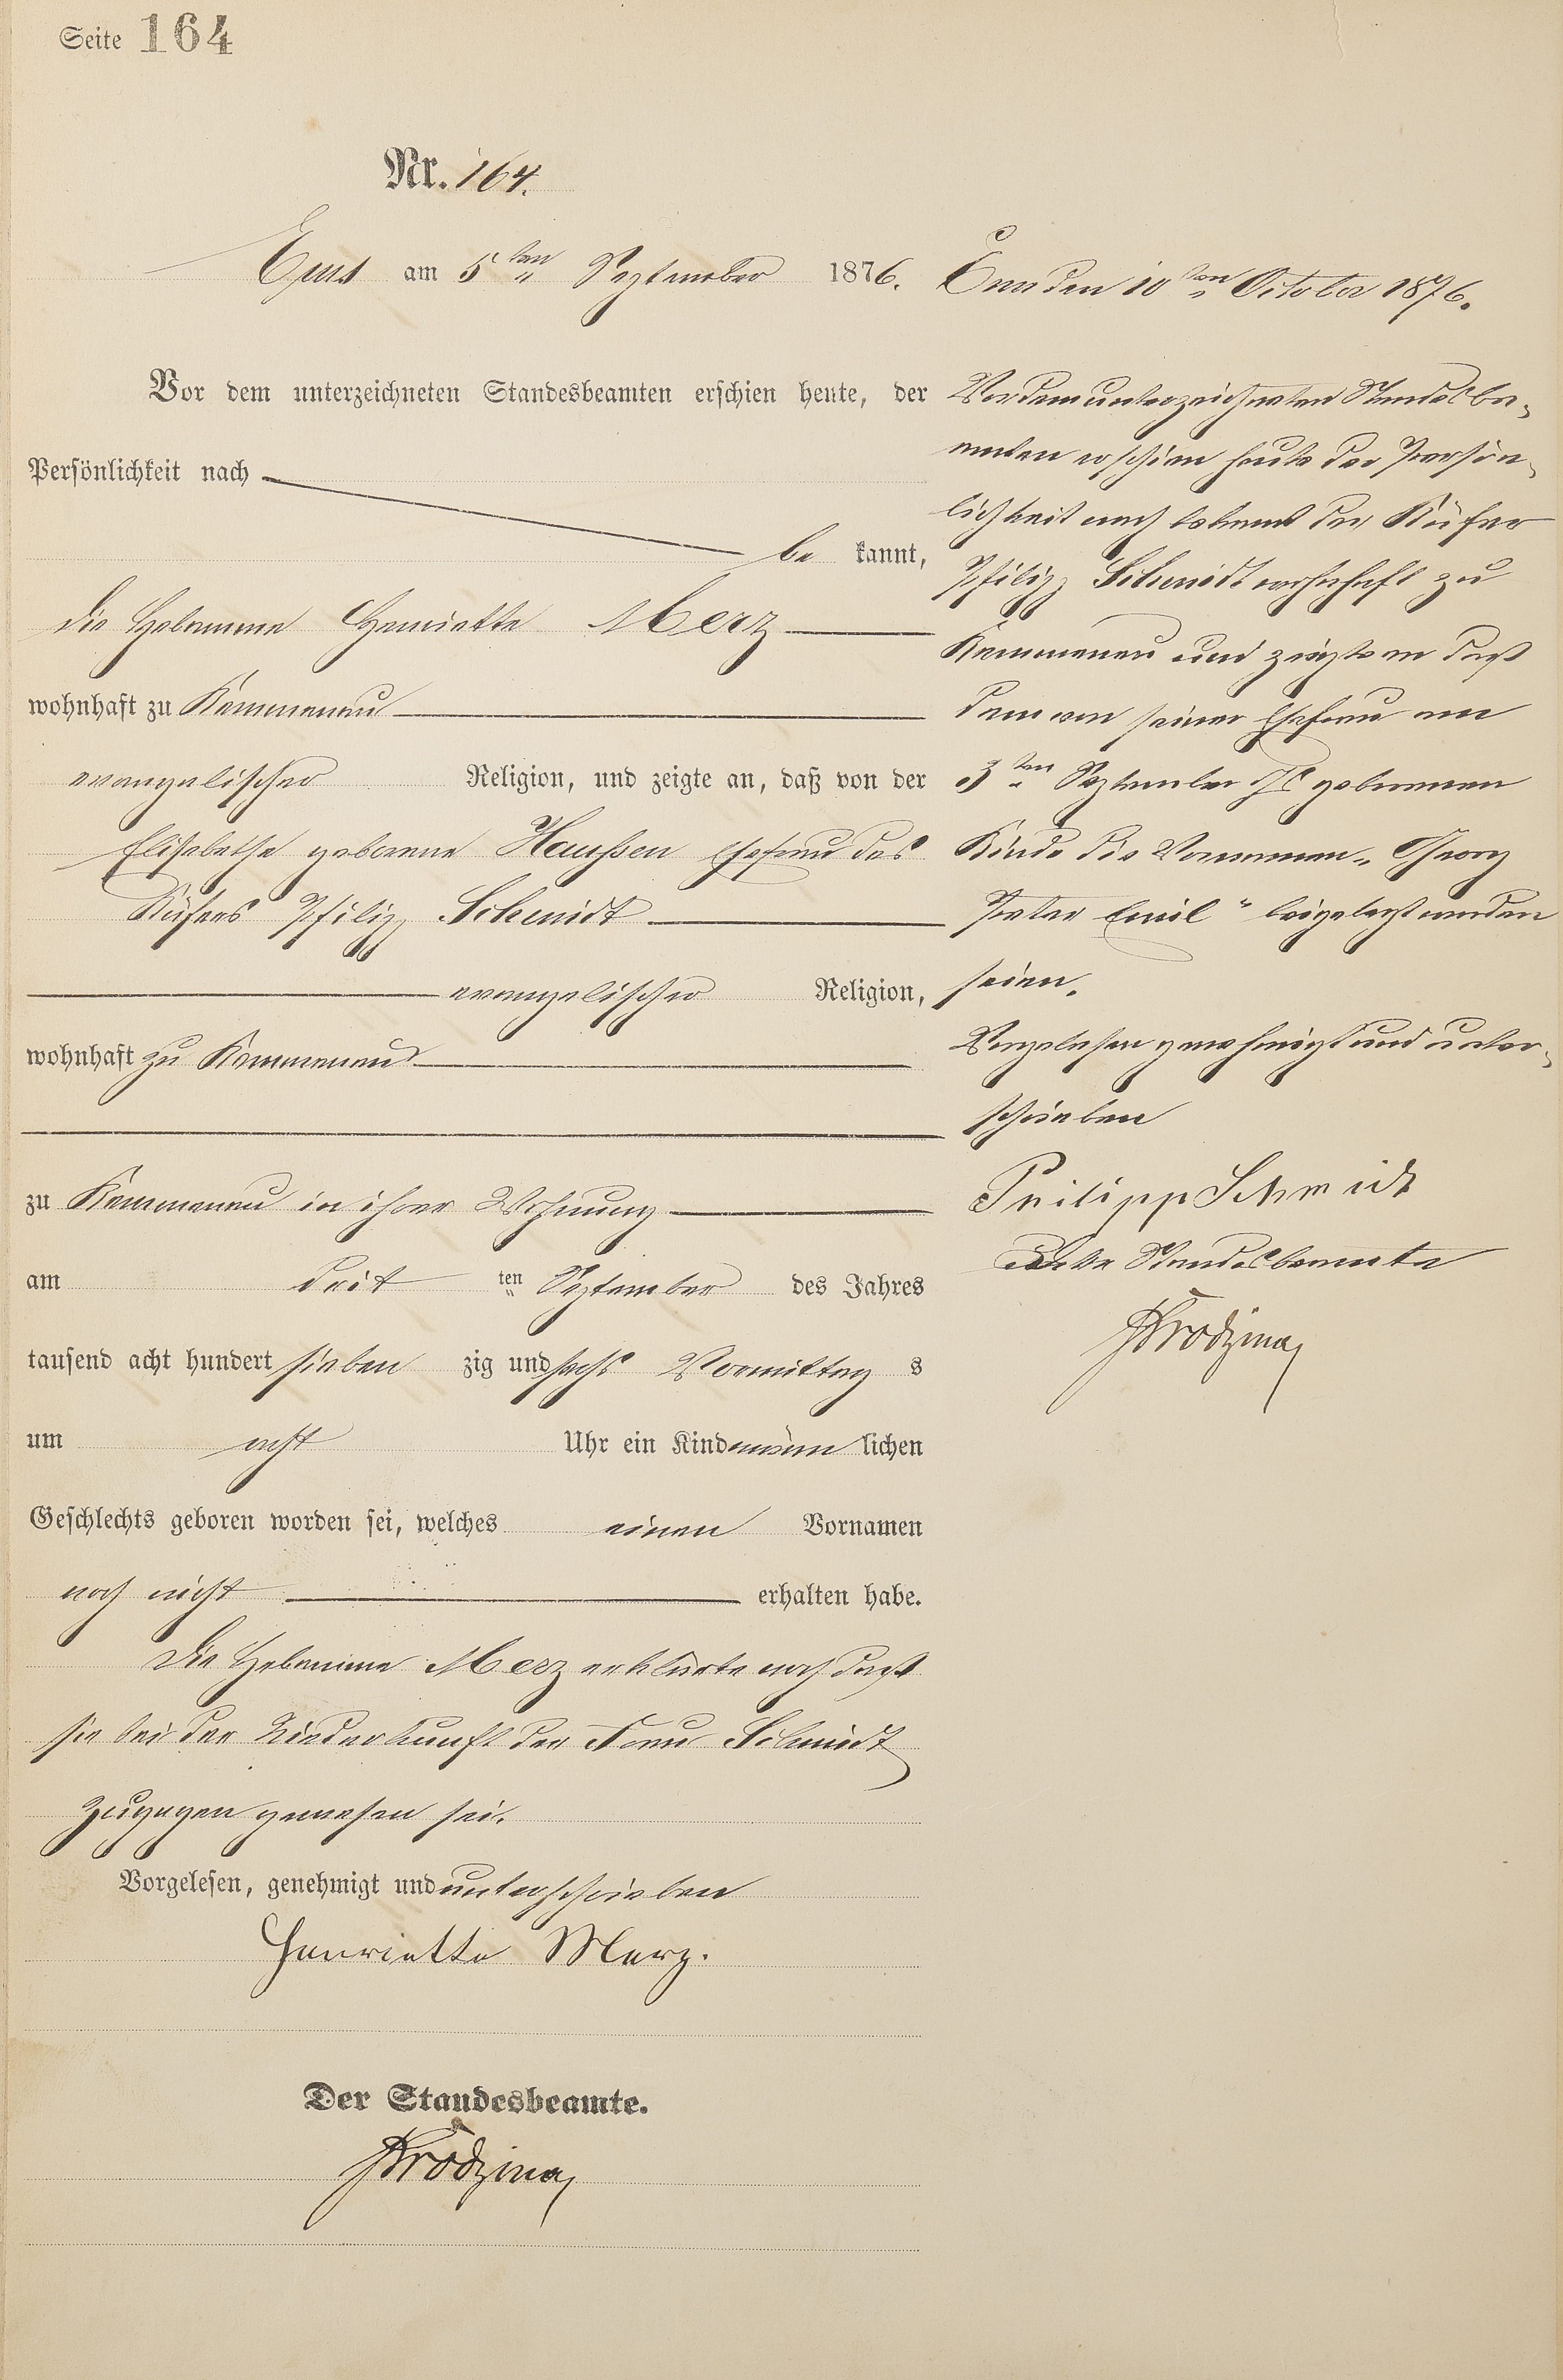 Seite 164
Nr. 164.
Ems am 5ten September 1876.
Vor dem unterzeichneten Standesbeamten erschien heute, der
Persönlichkeit nach
be kannt,
die Hebamme Henriette Merz
wohnhaft zu Kemmenau
evangelischer Religion, und zeigte an, daß von der
Elisabethe geborene Haussen Ehefrau des
Küfers Philipp Schmidt
evangelischer Religion,
wohnhaft zu Kemmenau
zu Kemmenau in ihrer Wohnung
am drit ten September des Jahres
tausend acht hundert sieben zig und sechs Vormittag s
um acht Uhr ein Kind männ lichen
Geschlechts geboren worden sei, welches einen Vornamen
noch nicht erhalten habe.
Die Hebamme Merz erklärte noch daß
sie bei der Niederkunft der Frau Schmidt
zugegen gewesen sei.
Vorgelesen, genehmigt und unterschrieben
Henriette Merz.
Der Standesbeamte.
Ems den 10ten October 1876.
Vor dem unterzeichneten Standesbe-
amten erschien heute der Persön-
lichkeit nach bekannt der Küfer
Philipp Schmidt wohnhaft zu
Kemmenau und zeigte an daß
dem von seiner Ehefrau am
3ten September Js geborenen
Kinde die Vornamen „Georg
Peter Emil" beigelegt worden
seien.
Vorgelesen genehmigt und unter-
schrieben
Philipp Schmidt
Der Standesbeamte